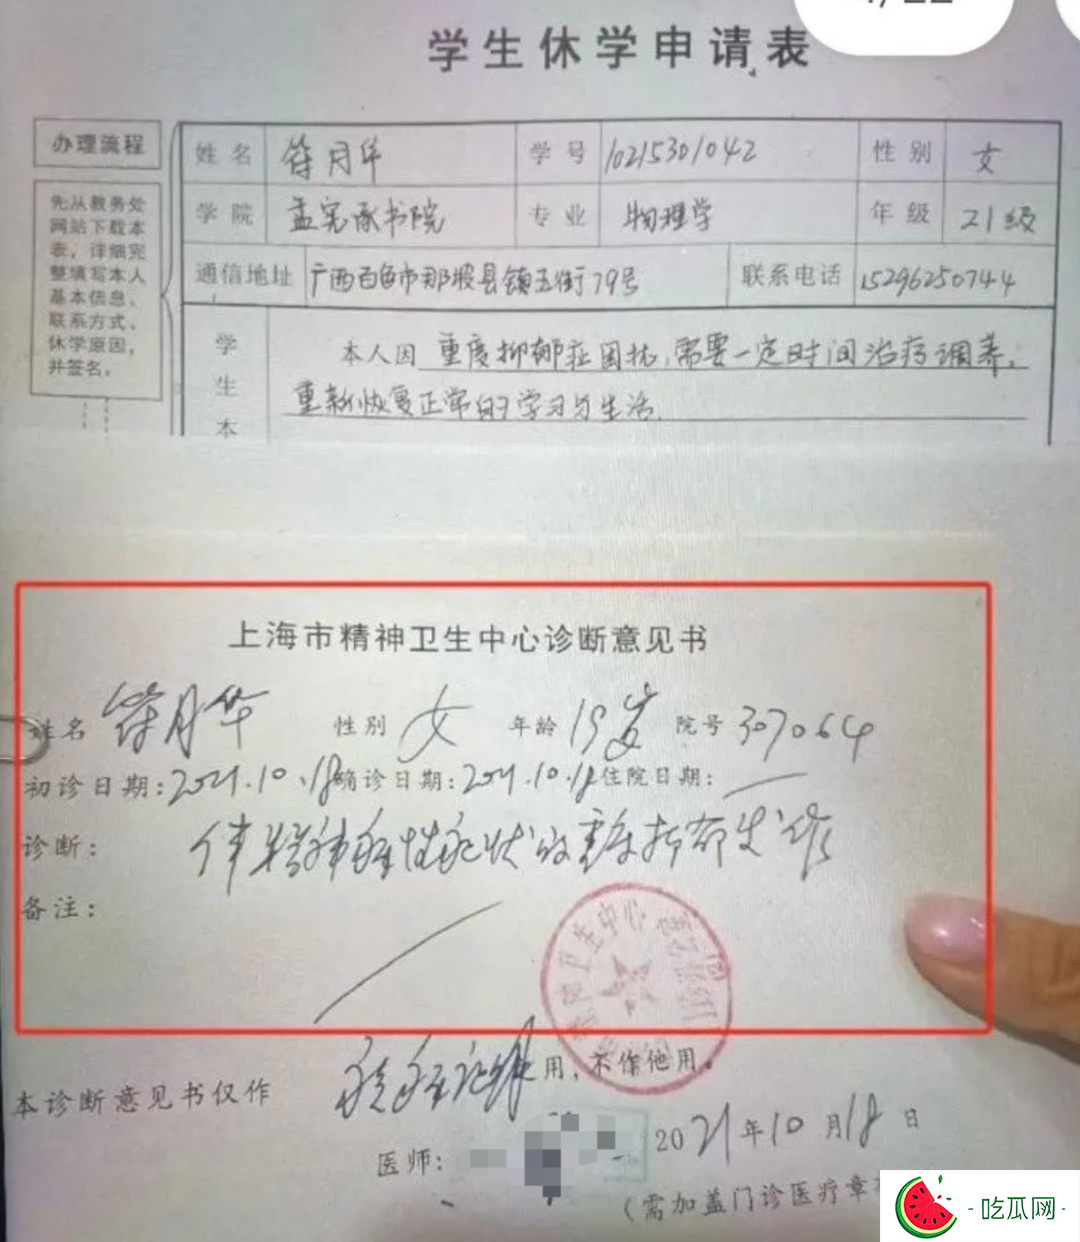 学生休学申请表
办理流程
先从教务处
网站下载本
表，详细完
整填写本人
基本信息、
联系方式、
休学原因，
并签名。
姓名 符月华 学号 10215301042 性别 女
学院 孟宪承书院 专业 物理学 年级 21级
通信地址 广西百色市那坡县镇玉街79号 联系电话 15296250744
学生本
本人因 重度抑郁症困扰，需要一定时间治疗调养，
重新恢复正常的学习与生活。
上海市精神卫生中心诊断意见书
姓名 符月华 性别 女 年龄 19岁 院号 307064
初诊日期：2021.10.18 确诊日期：2021.10.18 住院日期：
诊断： 伴精神病性症状的重度抑郁发作
备注：
本诊断意见书仅作 用，不作他用。
医师： 2021年10月18日
（需加盖门诊医疗章
吃瓜网